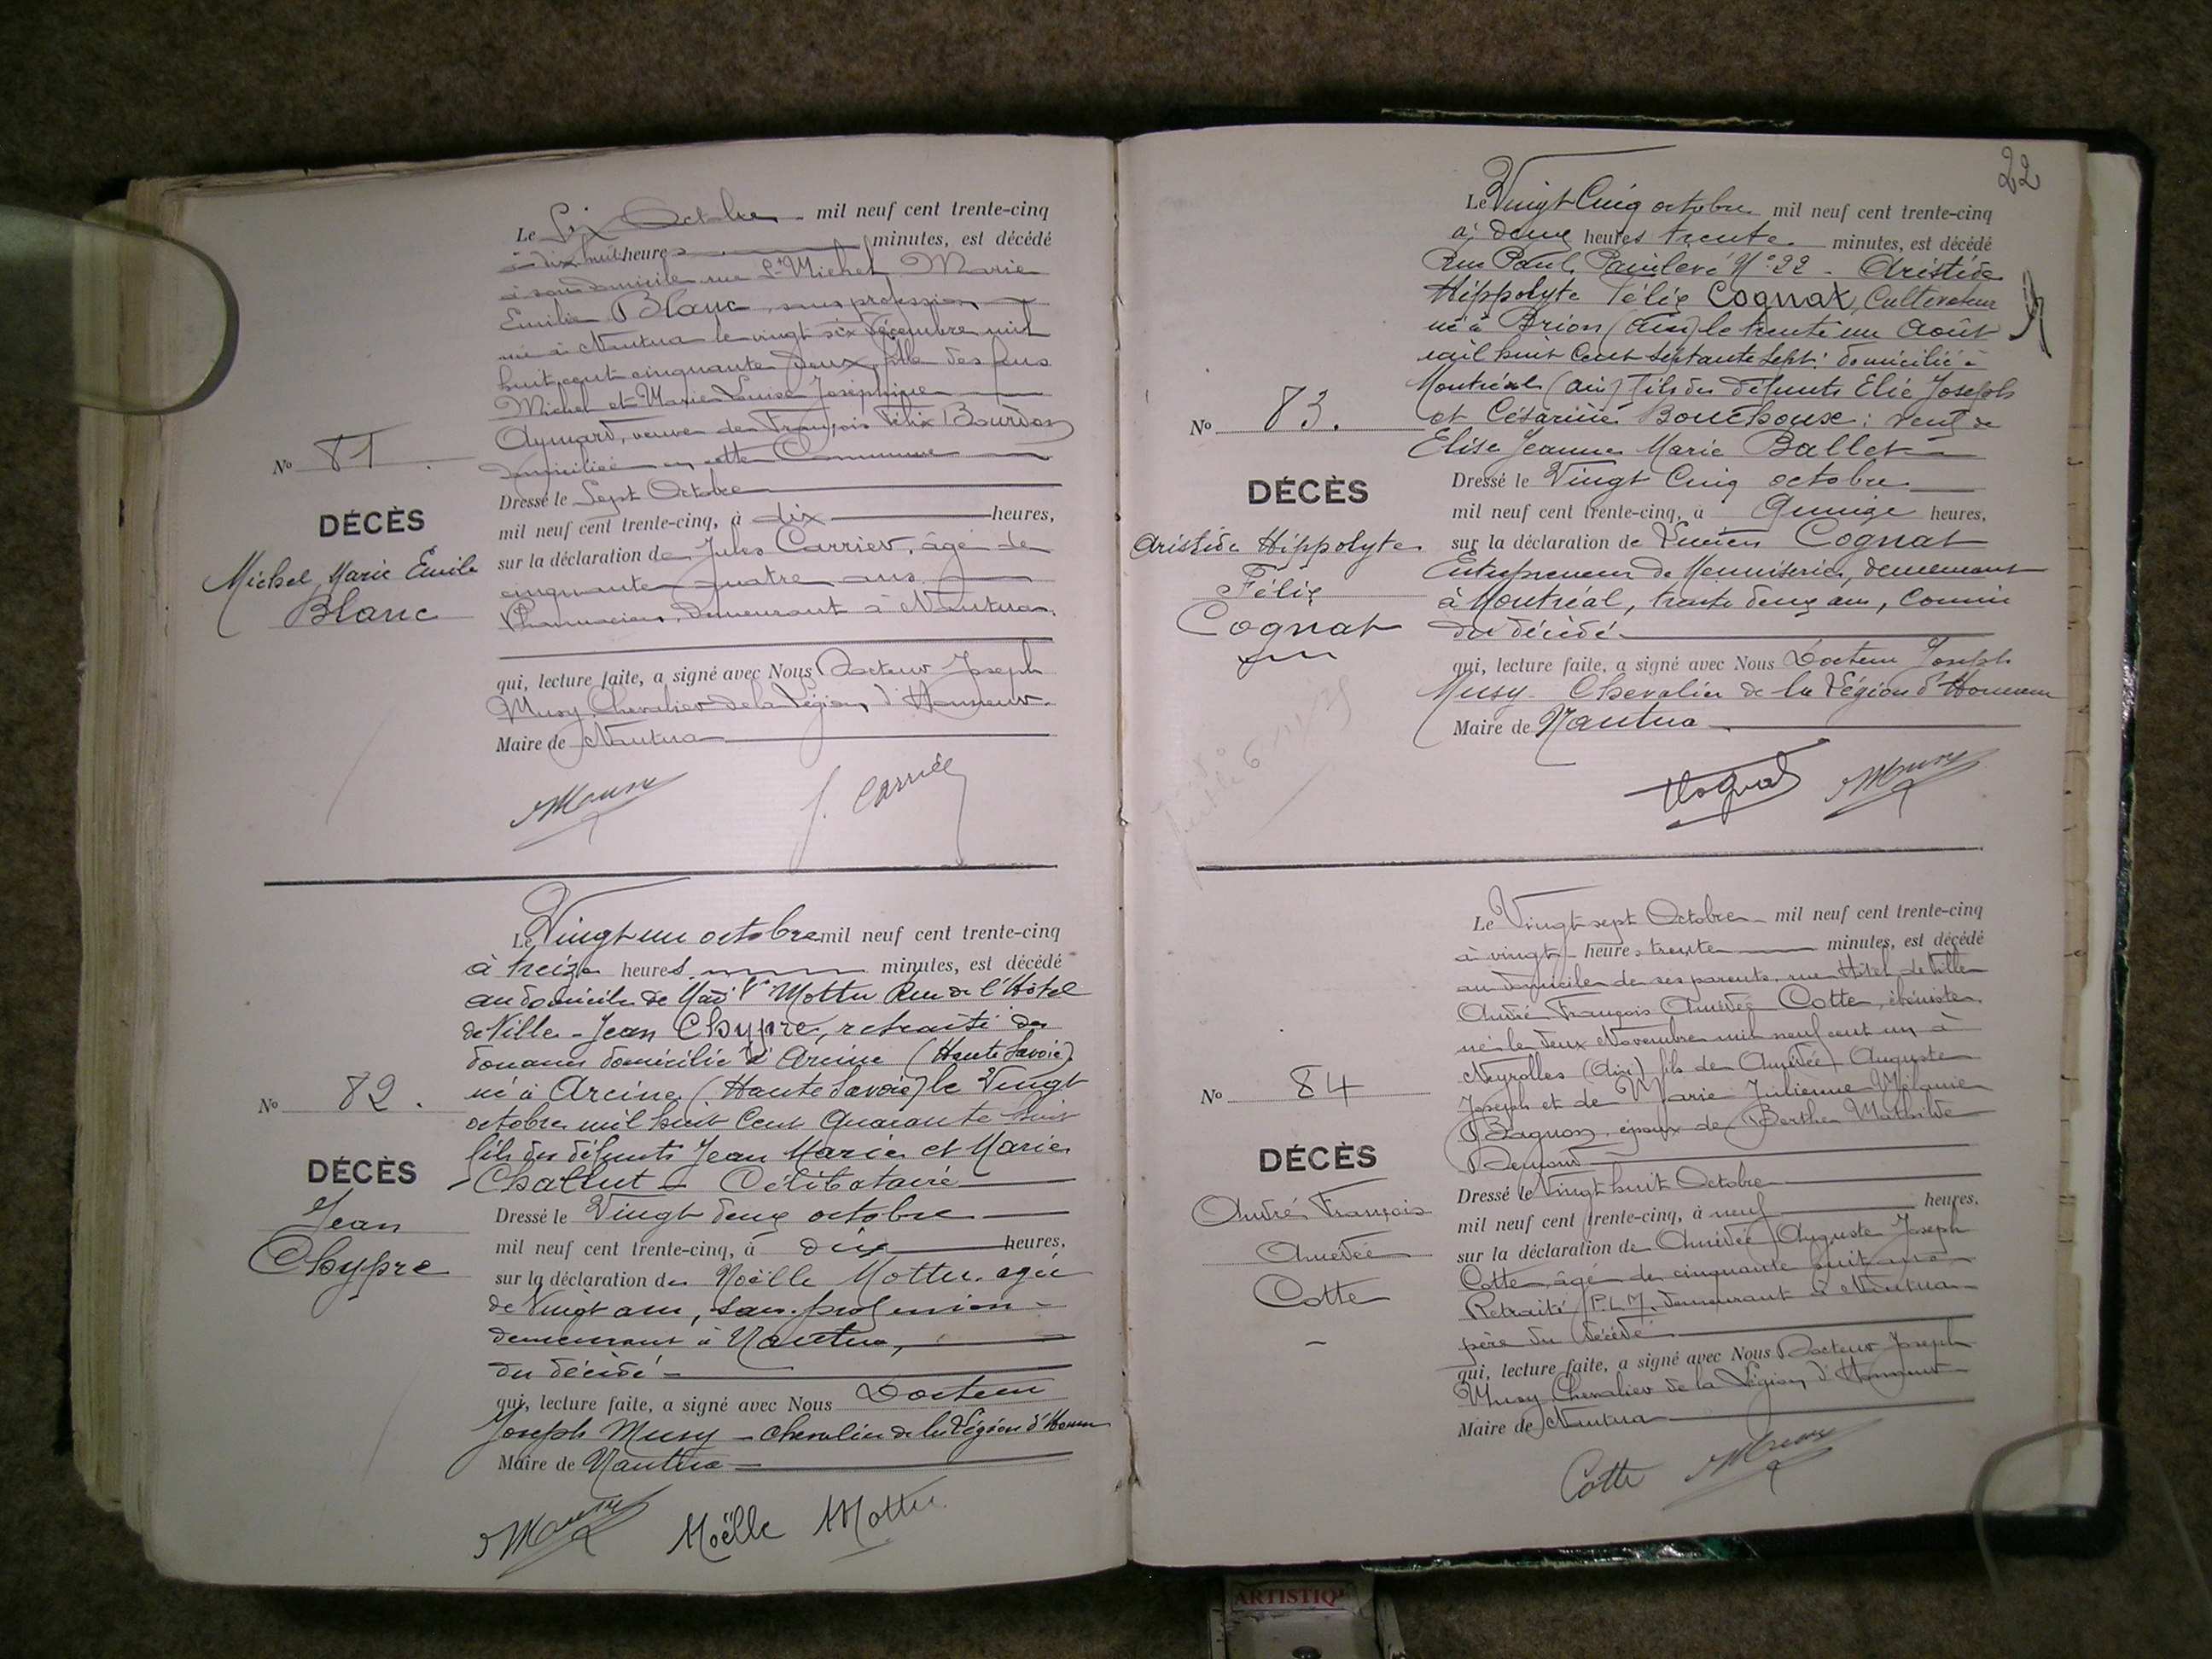 Le Six Octobre mil neuf cent trente-cinq
à dix huit heures minutes, est décédé
à son domicile rue St Michel Marie
Emilie Blanc, sans profession
née à Nantua le vingt six Décembre mil
huit cent cinquante deux, fille des feus
Michel et Marie Louise Joséphine
Aymard, veuve de François Félix Bourdon
domiciliée en cette Commune
No 81.
DÉCÈS
Michel Marie Emilie
Blanc
Dressé le Sept Octobre
mil neuf cent trente-cinq, à dix heures,
sur la déclaration de Jules Carrier, âgé de
cinquante quatre ans
Pharmacien, demeurant à Nantua.
qui, lecture faite, a signé avec Nous Docteur Joseph
Musy, Chevalier de la Légion d'Honneur.
Maire de Nantua
Musy J. Carrier
Le Vingt un octobre mil neuf cent trente-cinq
à treize heures minutes, est décédé
au domicile de Mottu Rue de l'Hôtel
de Ville - Jean Chypre, retraité des
douanes domicilié à Arcine (Haute Savoie)
né à Arcine (Haute Savoie) le Vingt
octobre mil huit Cent Quarante huit
fils des défunts Jean Marie et Marie
Challut - Célibataire
No 82.
DÉCÈS
Jean
Chypre
Dressé le Vingt deux octobre
mil neuf cent trente-cinq, à dix heures,
sur la déclaration de Noëlle Mottu, agée
de Vingt ans, sans profession -
demeurant à Nantua,
du décédé -
qui, lecture faite, a signé avec Nous Docteur
Joseph Musy - chevalier de la Légion d'Honneur
Maire de Nantua
Musy Noëlle Mottu
22
Le Vingt Cinq octobre mil neuf cent trente-cinq
à deux heures trente minutes, est décédé
Rue Paul Painlevé No 22 - Aristide
Hippolyte Félix Cognat, Cultivateur
né à Brion (Ain) le trente un Août
mil huit Cent Septante Sept: domicilié à
Montréal (Ain) fils des défunts Elie Joseph
et Césarine Bouchoux: Veuf de
Elise Jeanne Marie Ballet
No 83.
DÉCÈS
Aristide Hippolyte
Félix
Cognat
Dressé le Vingt Cinq octobre
mil neuf cent trente-cinq, à Quinze heures,
sur la déclaration de Lucien Cognat
Entrepreneur de Menuiserie, demeurant
à Montréal, trente deux ans, Cousin
du décédé
qui, lecture faite, a signé avec Nous Docteur Joseph
Musy - Chevalier de la Légion d'Honneur
Maire de Nantua
Cognat Musy
Le Vingt sept Octobre mil neuf cent trente-cinq
à vingt heures trente minutes, est décédé
au domicile de ses parents, rue Hôtel de Ville
André François Amédée Cotte, ébéniste,
né le deux Novembre mil neuf cent un à
Neyrolles (Ain) fils de Amédée Auguste
Joseph et de Marie Julienne Mélanie
Bagnon, époux de Berthe Mathilde
No 84
DÉCÈS
André François
Amédée
Cotte
Dressé le Vingt huit Octobre
mil neuf cent trente-cinq, à neuf heures,
sur la déclaration de Amédée Auguste Joseph
Cotte, âgé de cinquante huit ans
Retraité P.L.M. demeurant à Nantua
père du décédé
qui, lecture faite, a signé avec Nous Docteur Joseph
Musy Chevalier de la Légion d'Honneur
Maire de Nantua
Cotte Musy